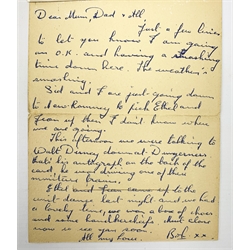 Dear Mum, Dad & All
Just a few lines
to let you know I am going
on O.K. and having a smashing
time down here. The weather's
smashing.
Sid and I are just going down
to New Romney to pick Ethel and
Jean up then I don't know where
we are going.
This afternoon we were talking to
Walt Disney down at Dungeness
that's his autograph on the back of the
card, he was driving one of those
miniture trains.
Ethel and Jean came up to the
unit dance last night and we had
a lovely time, won a box of choc's
and some handkerchiefs. Must close
now so see you soon.
All my love
Bob xx